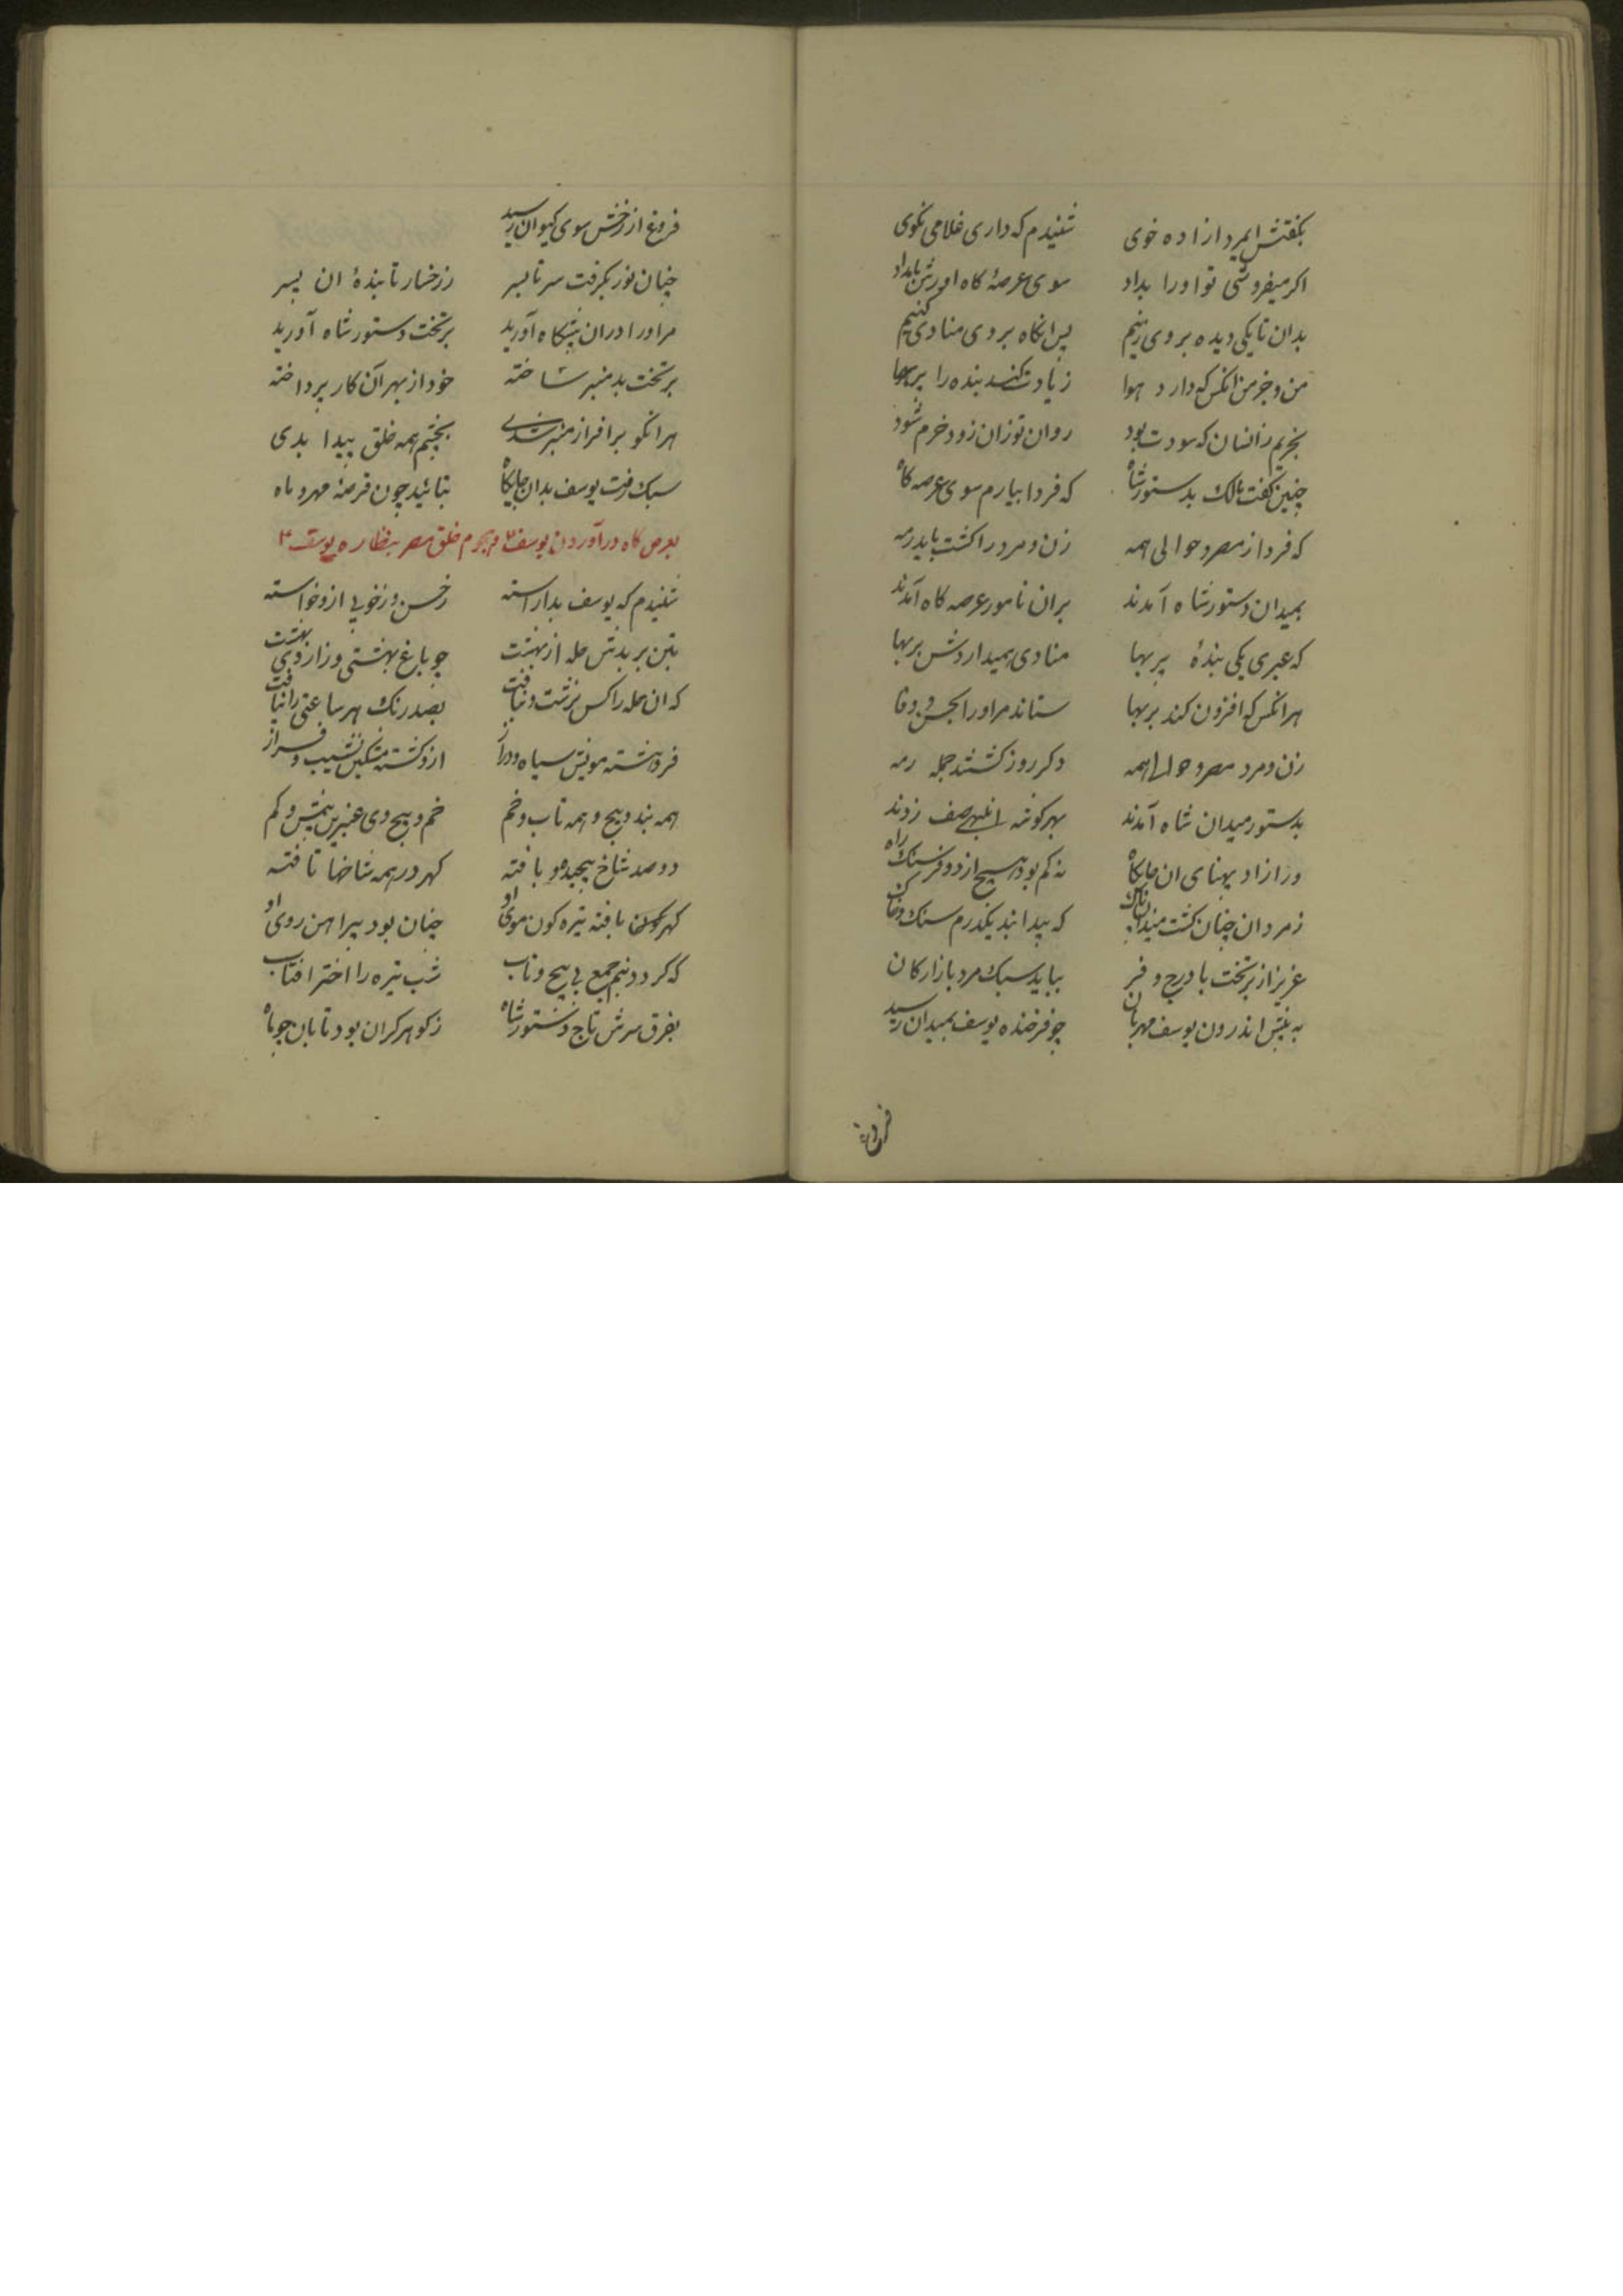 بگفتش ایمرد ازاده خوی شنیدم که داری غلامی نکوی
اکر میفروشی تو او را بداد سوی عرصهٔ کاه اورش بامداد
بدان تا یکی دیده بر وی زنیم پس انکاه بر وی منادی کنیم
من و جز من انکس که دارد هوا زیادت کند بنده را بر بها
بخریم زانسان که سودت بود روان تو زان زود خرم شود
چنین کفت مالک بدستور شاه که فردا بیارم سوی عرصه کاه
که فردا ز مصر و حوالی همه زن و مرد را کشت باید رمه
بمیدان دستور شاه آمدند بران نامور عرصه کاه آمدند
که عبری یکی بندهٔ پر بها منادی همیداردش بر بها
هر انکس که افزون کند بر بها ستاند مر او را بحسن و وفا
زن و مرد مصر و حوالی همه دکر روز کشتند جمله رمه
بدستور میدان شاه آمدند بهر کوشه انبهی صف زدند
ورازا و پهنای ان جایکاه نه کم بود هیچ از دو فرسنک راه
ز مردان چنان کشت میدان که پیدا نبد یکدرم سنک
عزیز از بر تخت با درج و فر بیاید سبک مرد بازارکان
به پیش اندرون یوسف مهربان چو فرخنده یوسف بمیدان رسید
فروغ
فروغ از رخش سوی کیوان رسید
چنان نور بکرفت سر تا بسر ز رخسار تابندهٔ ان پسر
مر او را دران پیشکاه آورید بر تخت دستور شاه آورید
بر تخت بد منبر ساخته خود از بهر آن کار پرداخته
هر انکو بر افراز منبر شدی بچشم همه خلق پیدا بدی
سبک رفت یوسف بدان جایکاه بتابید چون قرصهٔ مهر و ماه
بعرص کاه درآوردن یوسف ۴ و هجوم خلق مصر بنظاره یوسف ۴
شنیدم که یوسف بد اراسته ز حسن و ز خوبی ازو خواسته
بتن بر بدش حله از بهشت چو باغ بهشتی وز اردیبهشت
که ان حله را کس نرشت و نبافت بصد رنک هر ساعتی رانیافت
فروهشته مویش سیاه و دراز ازو کشته مشکین نشیب و فراز
همه بند و پیچ و همه تاب و خم خم و پیچ وی عنبرین بیش و کم
دو صد شاخ پیچیده مو بافته کهر در همه شاخها تافته
کهر بافته تیره کون موی او چنان بود پیراهن روی او
که کرد دنیم جمع بی پیچ و تاب شب تیره را اختر افتاب
بفرق سرش تاج دستور شاه ز کوهر کران بود تابان چو ماه